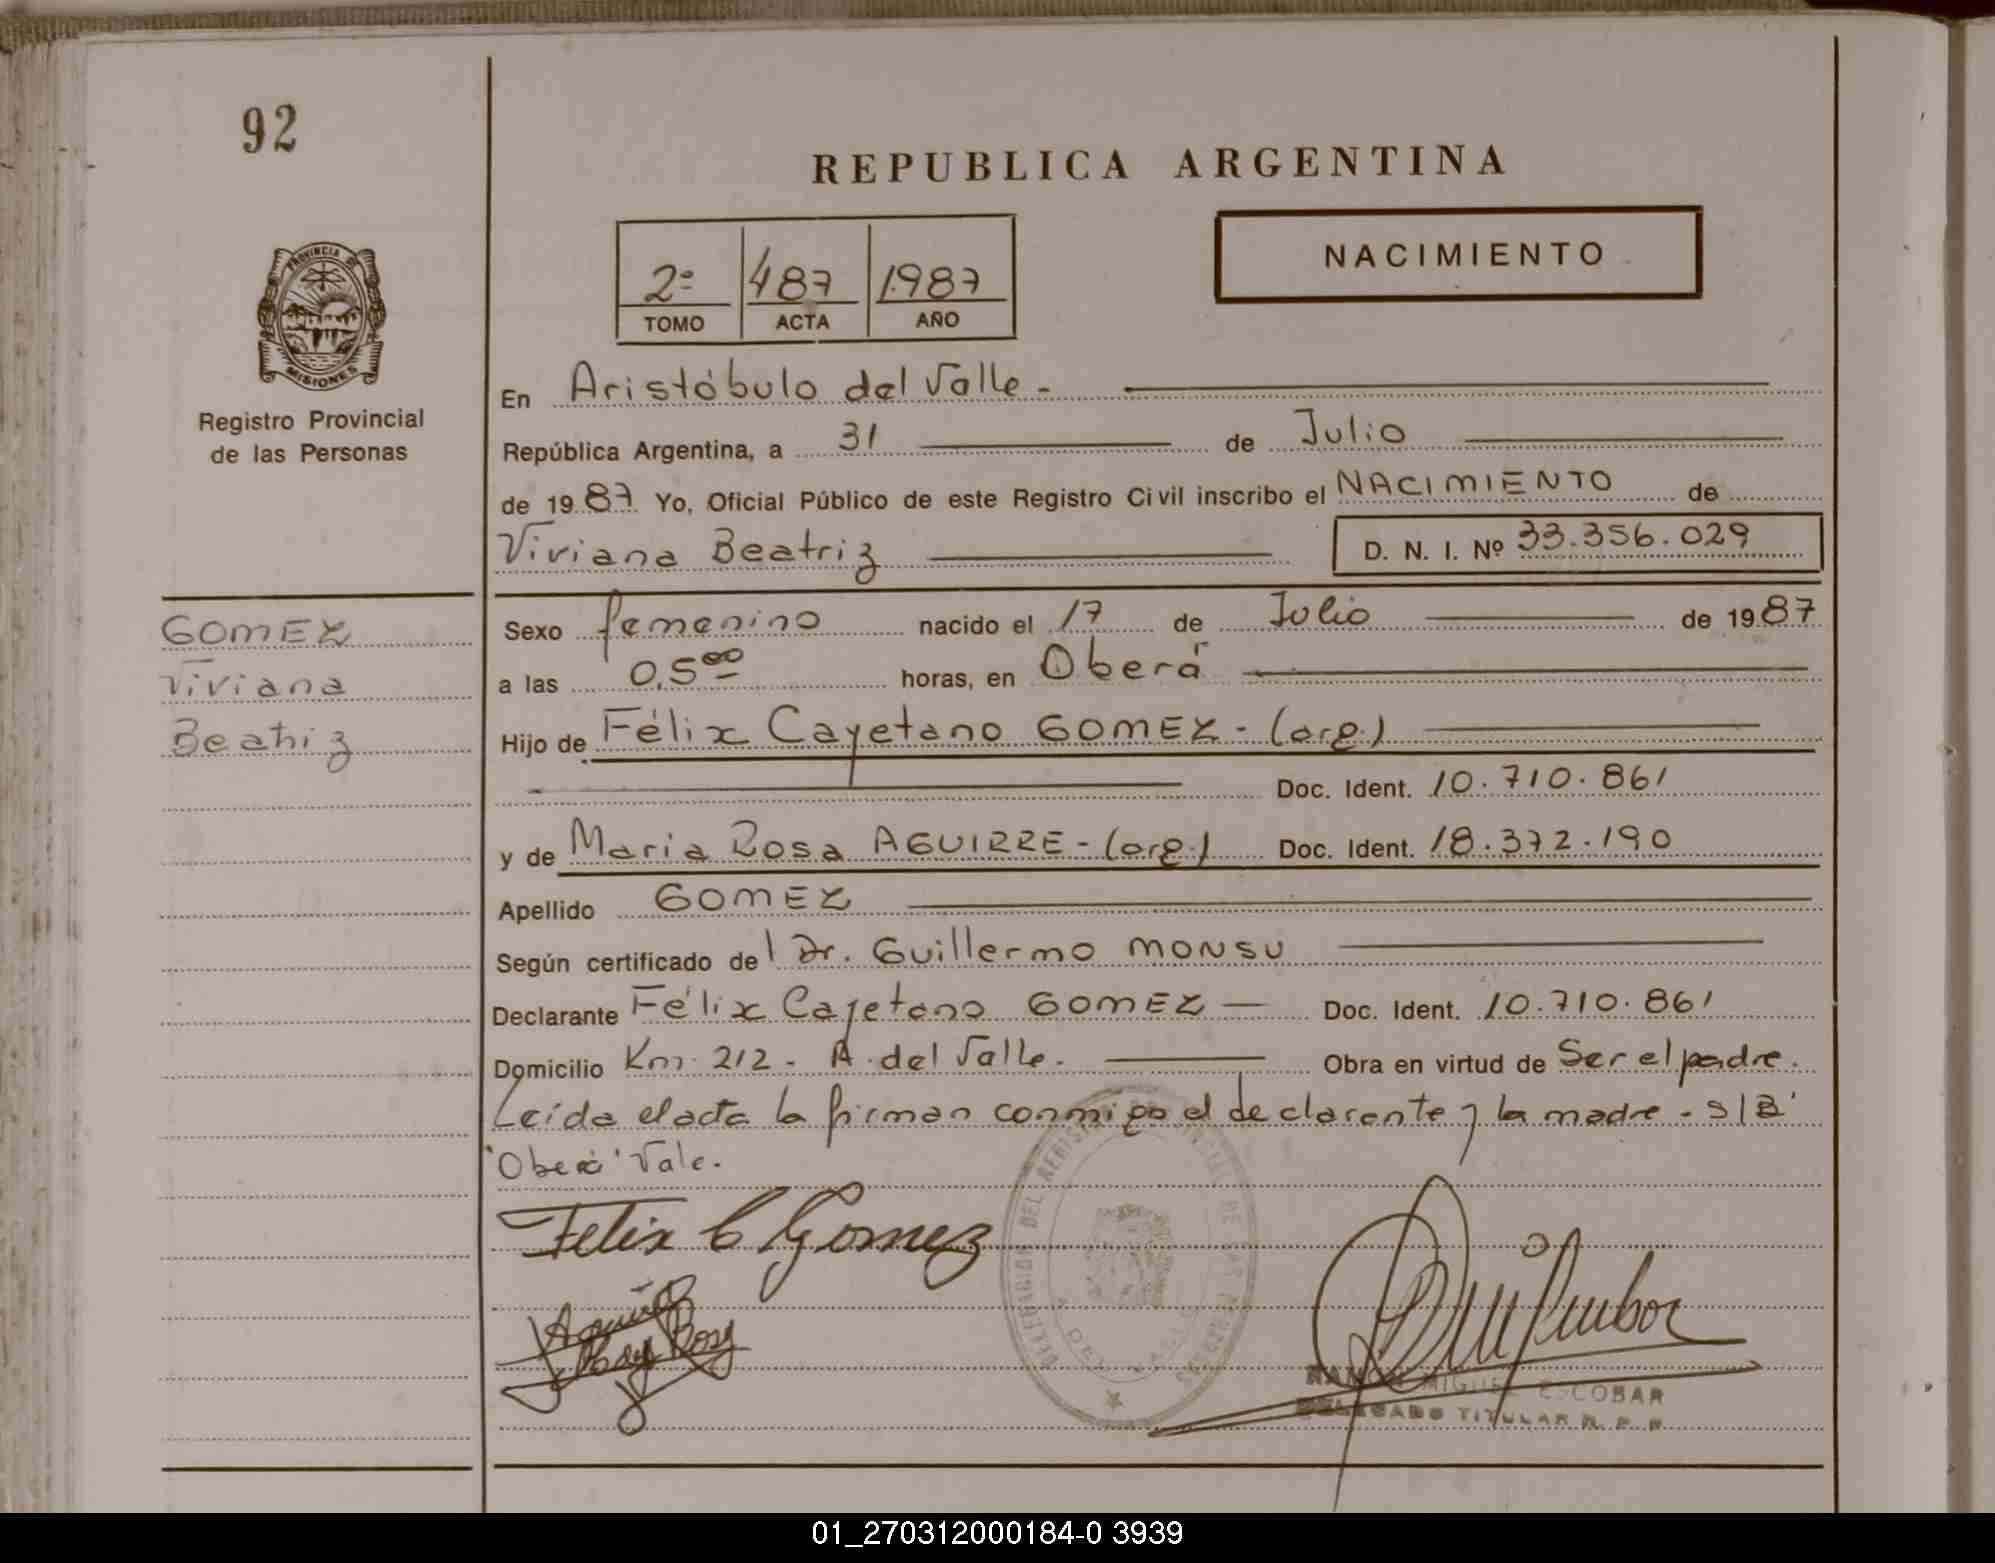 92
REPUBLICA ARGENTINA
PROVINCIA DE
MISIONES
Registro Provincial
de las Personas
2º 487 1987
TOMO ACTA AÑO
NACIMIENTO
En Aristóbulo del Valle -
República Argentina, a 31 de Julio
de 1987 Yo, Oficial Público de este Registro Civil inscribo el NACIMIENTO de
Viviana Beatriz D. N. I. Nº 33.356.029
GOMEZ
Viviana
Beatriz
Sexo femenino nacido el 17 de Julio de 1987
a las 0,5 00 horas, en Oberá
Hijo de Félix Cayetano GOMEZ - (arg.)
Doc. Ident. 10.710.861
y de Maria Rosa AGUIRRE - (arg.) Doc. Ident. 18.372.190
Apellido GOMEZ
Según certificado del Dr. Guillermo MONSU
Declarante Félix Cayetano GOMEZ — Doc. Ident. 10.710.861
Domicilio Km 212 - A. del Valle. Obra en virtud de Ser el padre.
Leída el acta la firman conmigo el declarante y la madre - S/B
"Oberá" Vale.
Felix C Gomez
Rosa
RAMON MIGUEL ESCOBAR
DELEGADO TITULAR R. P. P.
01_270312000184-0 3939